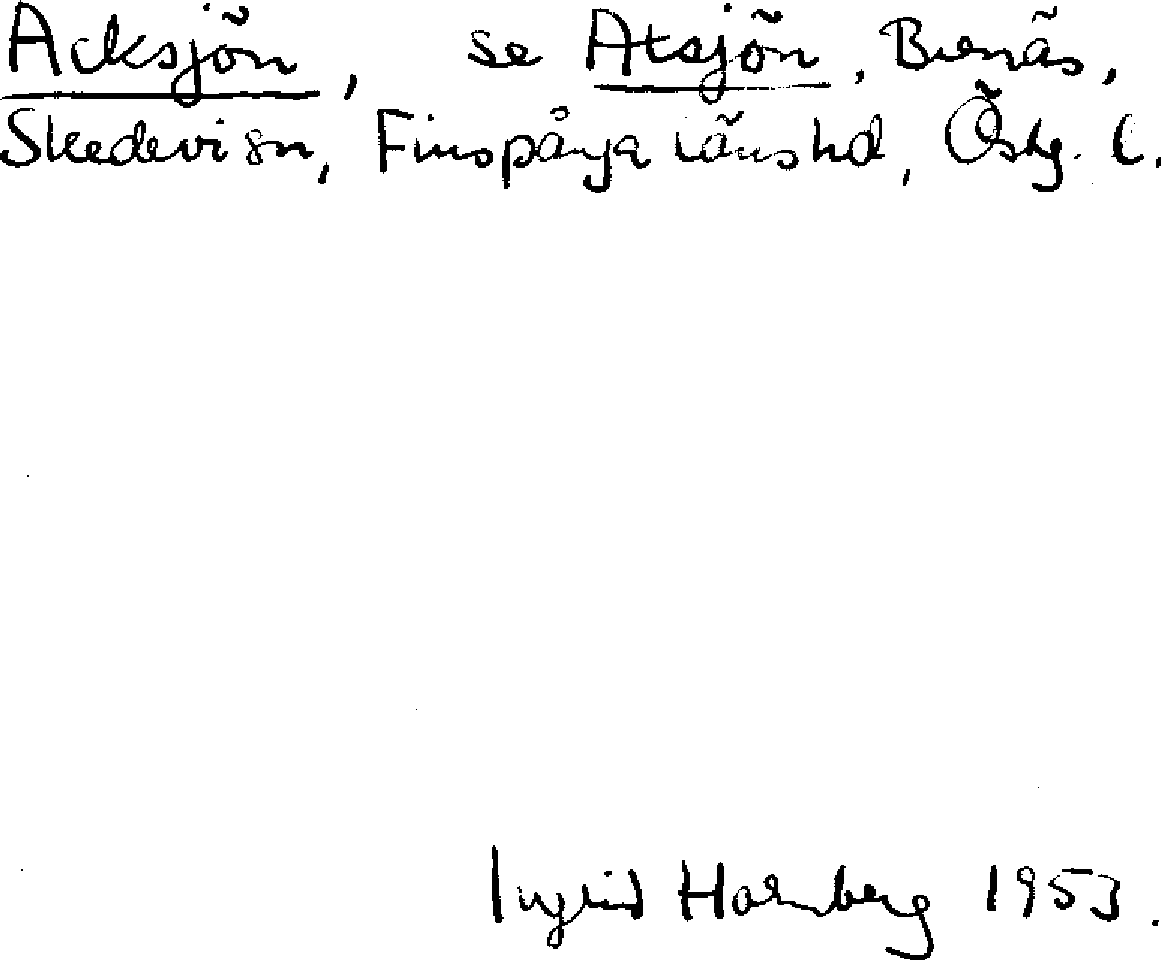 Acksjön, se Atsjön, Brenäs,
Skedevi sn, Finspånga länshd, Östg. l.
Ingrid Holmberg 1953.